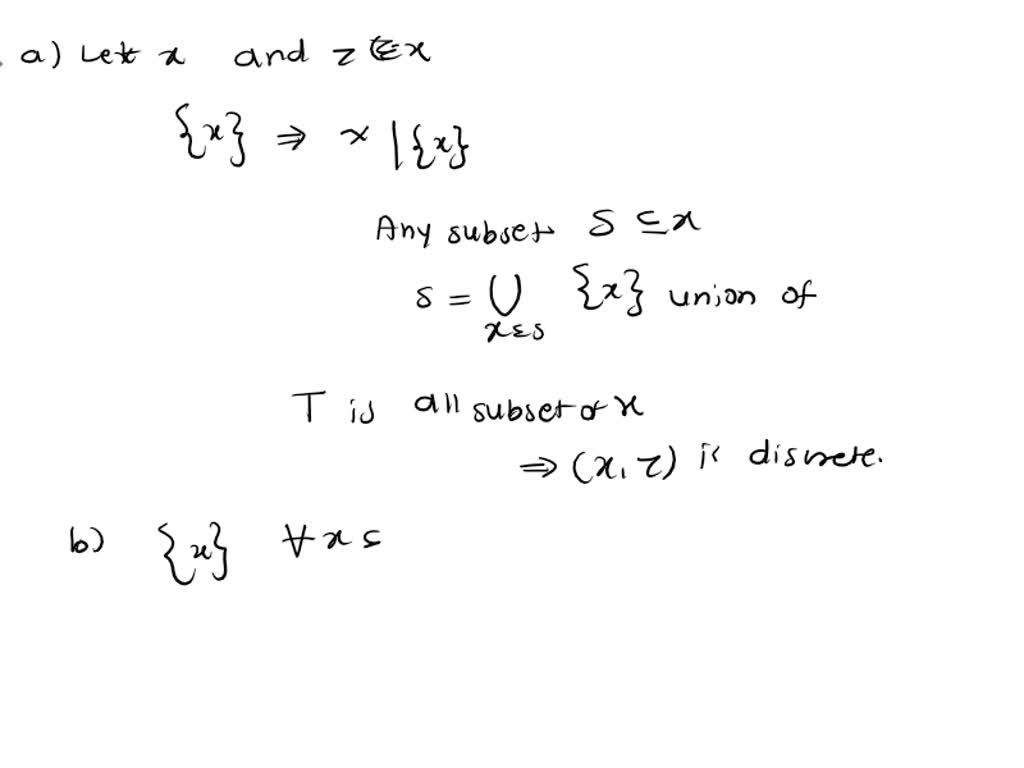 a) Let x and z ∈ x
{x} ⇒ x | {x}
Any subset S ⊆ x
S = ⋃ {x} union of
x ∈ S
T is all subset of x
⇒ (x, τ) is discrete.
b) {x} ∀ x ⊆